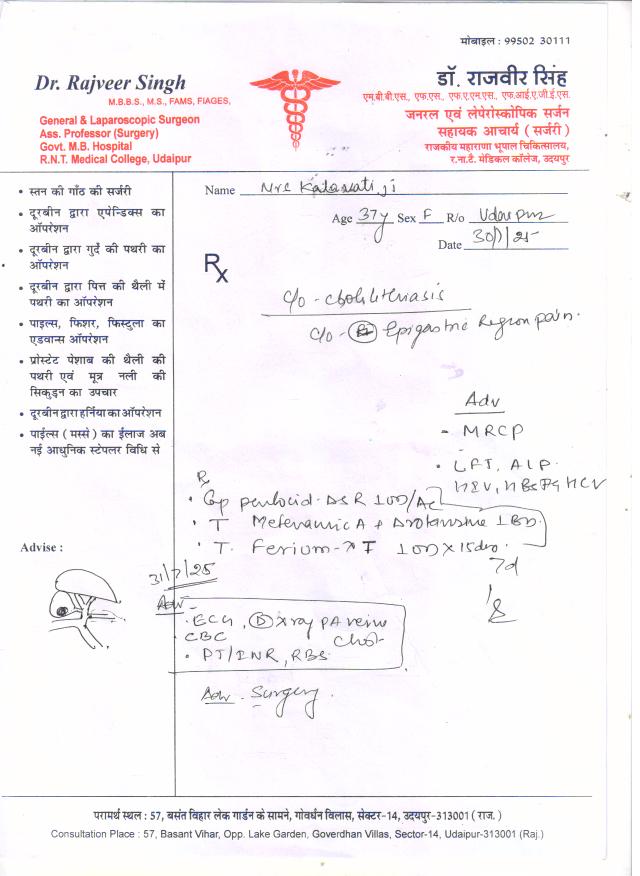 मोबाइल : 99502 30111
Dr. Rajveer Singh
M.B.B.S., M.S., FAMS, FIAGES,
General & Laparoscopic Surgeon
Ass. Professor (Surgery)
Govt. M.B. Hospital
R.N.T. Medical College, Udaipur
डॉ. राजवीर सिंह
एम.बी.बी.एस., एफ.एस., एफ.ए.एम.एस., एफ.आई.ए.जी.ई.एस.
जनरल एवं लेपेरोस्कोपिक सर्जन
सहायक आचार्य ( सर्जरी )
राजकीय महाराणा भूपाल चिकित्सालय,
र.ना.टै. मेडिकल कॉलेज, उदयपुर
• स्तन की गाँठ की सर्जरी
• दूरबीन द्वारा एपेन्डिक्स का
ऑपरेशन
• दूरबीन द्वारा गुर्दे की पथरी का
ऑपरेशन
• दूरबीन द्वारा पित्त की थैली में
पथरी का ऑपरेशन
• पाइल्स, फिशर, फिस्टुला का
एडवान्स ऑपरेशन
• प्रोस्टेट पेशाब की थैली की
पथरी एवं मूत्र नली की
सिकुड़न का उपचार
• दूरबीन द्वारा हर्निया का ऑपरेशन
• पाईल्स ( मस्से ) का ईलाज अब
नई आधुनिक स्टेपलर विधि से
Advise :
Name Mrs Kalawati ji
Age 37y Sex F R/o Udaipur
Date 30/7/25
Rx
C/O - Cholilithiasis
C/O - Epigastric Region pain.
Adv
- MRCP
• LFT, ALP.
HIV, HBsAg HCV
Rx
• Cap pentocid-DSR 1OD/AC
• T Mefenamic A + Drotaverine 1BD.
• T. Ferium-XT 1OD X 15days.
7d
31/7/25
Adv -
• ECG, X ray PA view
Chest
CBC
• PT/INR, RBS.
Adv - Surgery.
परामर्थ स्थल : 57, बसंत विहार लेक गार्डन के सामने, गोवर्धन विलास, सेक्टर-14, उदयपुर-313001 ( राज. )
Consultation Place : 57, Basant Vihar, Opp. Lake Garden, Goverdhan Villas, Sector-14, Udaipur-313001 (Raj.)